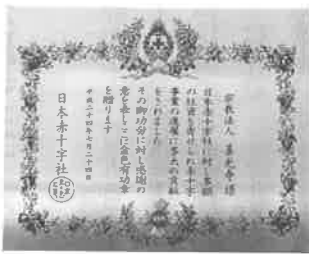 宗教法人 善光寺様
日本赤十字社に対し多額
の社資を寄せられ赤十字
事業の進展に多大の貢献
をされました
その御功労に対し感謝の
意を表しここに金色有功章
を贈ります
平成二十四年七月二十四日
日本赤十字社